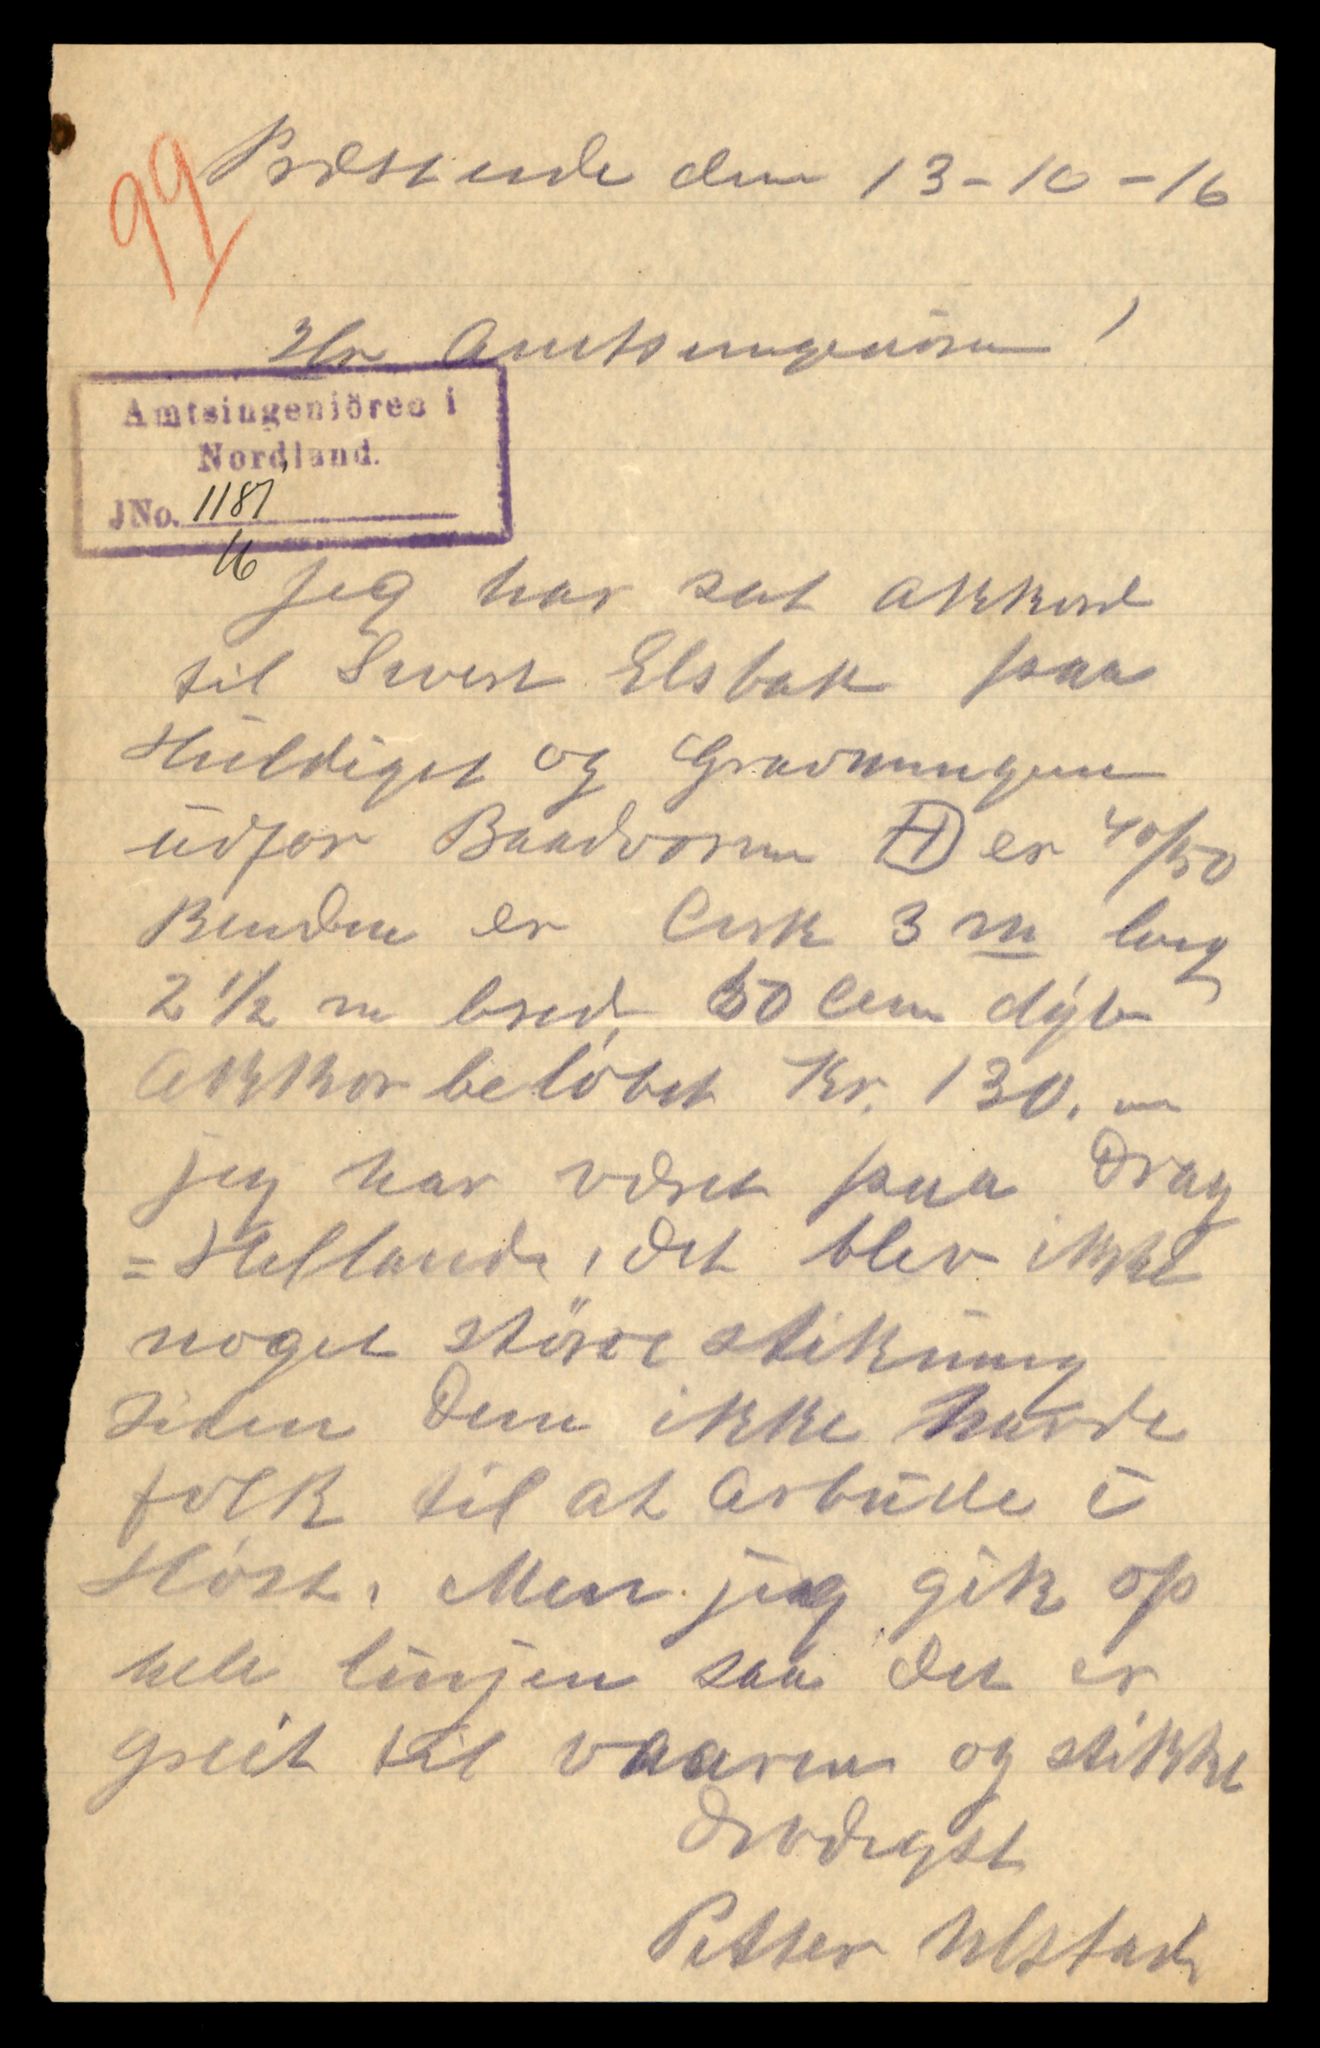 99
Præstende den 13-10-16
Hr Amtsingeniøren!
Amtsingeniören i
Nordland.
JNo. 1181
16
jeg har sat akkord
til Sivert Elsbak paa
Huldiget og Gravningen
udfor Baadvoren H er 40/50
Renden er Cirk 3 m lang
2 1/2 m bred 50 Cem dyb
Akkorbeløbet Kr. 130.
jeg har været paa Drag
=Helland, det blev ikke
noget større stikning
siden Dem ikke havde
folk til at arbeide i
Høst. Men jeg gik op
hele linjen saa det er
greit til vaaren og stikke
Ærbdigst
Petter Ulstad